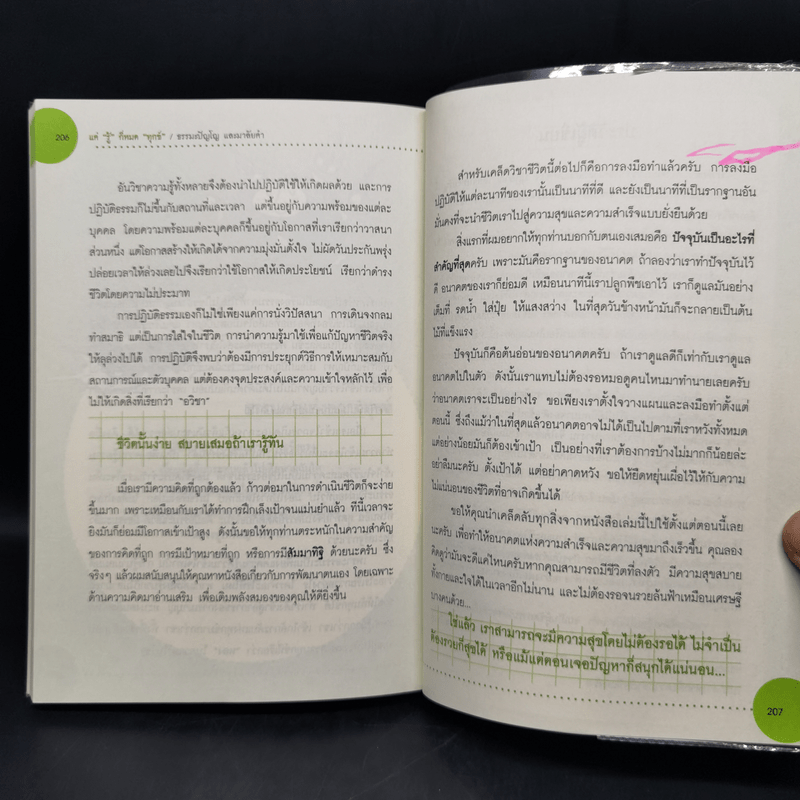 206
แค่ "รู้" ก็หมด "ทุกข์" / ธรรมะปัญโญ และมาลัยคำ
อันวิชาความรู้ทั้งหลายจึงต้องนำไปปฏิบัติใช้ให้เกิดผลด้วย และการ
ปฏิบัติธรรมก็ไม่ขึ้นกับสถานที่และเวลา แต่ขึ้นอยู่กับความพร้อมของแต่ละ
บุคคล โดยความพร้อมแต่ละบุคคลก็ขึ้นอยู่กับโอกาสที่เราเรียกว่าวาสนา
ส่วนหนึ่ง แต่โอกาสสร้างให้เกิดได้จากความมุ่งมั่นตั้งใจ ไม่ผัดวันประกันพรุ่ง
ปล่อยเวลาให้ล่วงเลยไปจึงเรียกว่าใช้โอกาสให้เกิดประโยชน์ เรียกว่าดำรง
ชีวิตโดยความไม่ประมาท
การปฏิบัติธรรมเองก็ไม่ใช่เพียงแค่การนั่งวิปัสสนา การเดินจงกลม
ทำสมาธิ แต่เป็นการใส่ใจในชีวิต การนำความรู้มาใช้เพื่อแก้ปัญหาชีวิตจริง
ให้ลุล่วงไปได้ การปฏิบัติจึงพบว่าต้องมีการประยุกต์วิธีการให้เหมาะสมกับ
สถานการณ์และตัวบุคคล แต่ต้องคงจุดประสงค์และความเข้าใจหลักไว้ เพื่อ
ไม่ให้เกิดสิ่งที่เรียกว่า "อวิชา"
ชีวิตนั้นง่าย สบายเสมอถ้าเรารู้ทัน
เมื่อเรามีความคิดที่ถูกต้องแล้ว ก้าวต่อมาในการดำเนินชีวิตก็จะง่าย
ขึ้นมาก เพราะเหมือนกับเราได้ทำการฝึกเล็งเป้าจนแม่นยำแล้ว ทีนี้เวลาจะ
ยิงมันก็ย่อมมีโอกาสเข้าเป้าสูง ดังนั้นขอให้ทุกท่านตระหนักในความสำคัญ
ของการคิดที่ถูก การมีเป้าหมายที่ถูก หรือการมีสัมมาทิฐิ ด้วยนะครับ ซึ่ง
จริงๆ แล้วผมสนับสนุนให้คุณหาหนังสือเกี่ยวกับการพัฒนาตนเอง โดยเฉพาะ
ด้านความคิดมาอ่านเสริม เพื่อเติมพลังสมองของคุณให้ดียิ่งขึ้น
สำหรับเคล็ดวิชาชีวิตนี้ต่อไปก็คือการลงมือทำแล้วครับ การลงมือ
ปฏิบัติให้แต่ละนาทีของเรานั้นเป็นนาทีที่ดี และยังเป็นนาทีที่เป็นรากฐานอัน
มั่นคงที่จะนำชีวิตเราไปสู่ความสุขและความสำเร็จแบบยั่งยืนด้วย
สิ่งแรกที่ผมอยากให้ทุกท่านบอกกับตนเองเสมอคือ ปัจจุบันเป็นอะไรที่
สำคัญที่สุดครับ เพราะมันคือรากฐานของอนาคต ถ้าลองว่าเราทำปัจจุบันไว้
ดี อนาคตของเราก็ย่อมดี เหมือนนาทีนี้เราปลูกพืชเอาไว้ เราก็ดูแลมันอย่าง
เต็มที่ รดน้ำ ใส่ปุ๋ย ให้แสงสว่าง ในที่สุดวันข้างหน้ามันก็จะกลายเป็นต้น
ไม้ที่แข็งแรง
ปัจจุบันก็คือต้นอ่อนของอนาคตครับ ถ้าเราดูแลดีก็เท่ากับเราดูแล
อนาคตไปในตัว ดังนั้นเราแทบไม่ต้องรอหมอดูคนไหนมาทำนายเลยครับ
ว่าอนาคตเราจะเป็นอย่างไร ขอเพียงเราตั้งใจวางแผนและลงมือทำตั้งแต่
ตอนนี้ ซึ่งถึงแม้ว่าในที่สุดแล้วอนาคตอาจไม่ได้เป็นไปตามที่เราหวังทั้งหมด
แต่อย่างน้อยมันก็ต้องเข้าเป้า เป็นอย่างที่เราต้องการบ้างไม่มากก็น้อยล่ะ
อย่าลืมนะครับ ตั้งเป้าได้ แต่อย่าคาดหวัง ขอให้ยืดหยุ่นเผื่อไว้ให้กับความ
ไม่แน่นอนของชีวิตที่อาจเกิดขึ้นได้
ขอให้คุณนำเคล็ดลับทุกสิ่งจากหนังสือเล่มนี้ไปใช้ตั้งแต่ตอนนี้เลย
นะครับ เพื่อทำให้อนาคตแห่งความสำเร็จและความสุขมาถึงเร็วขึ้น คุณลอง
คิดดูว่ามันจะดีแค่ไหนครับหากคุณสามารถมีชีวิตที่ลงตัว มีความสุขสบาย
ทั้งกายและใจได้ในเวลาอีกไม่นาน และไม่ต้องรอจนรวยล้นฟ้าเหมือนเศรษฐี
บางคนด้วย...
ใช่แล้ว เราสามารถจะมีความสุขโดยไม่ต้องรอได้ ไม่จำเป็น
ต้องรวยก็สุขได้ หรือแม้แต่ตอนเจอปัญหาก็สนุกได้แน่นอน...
207